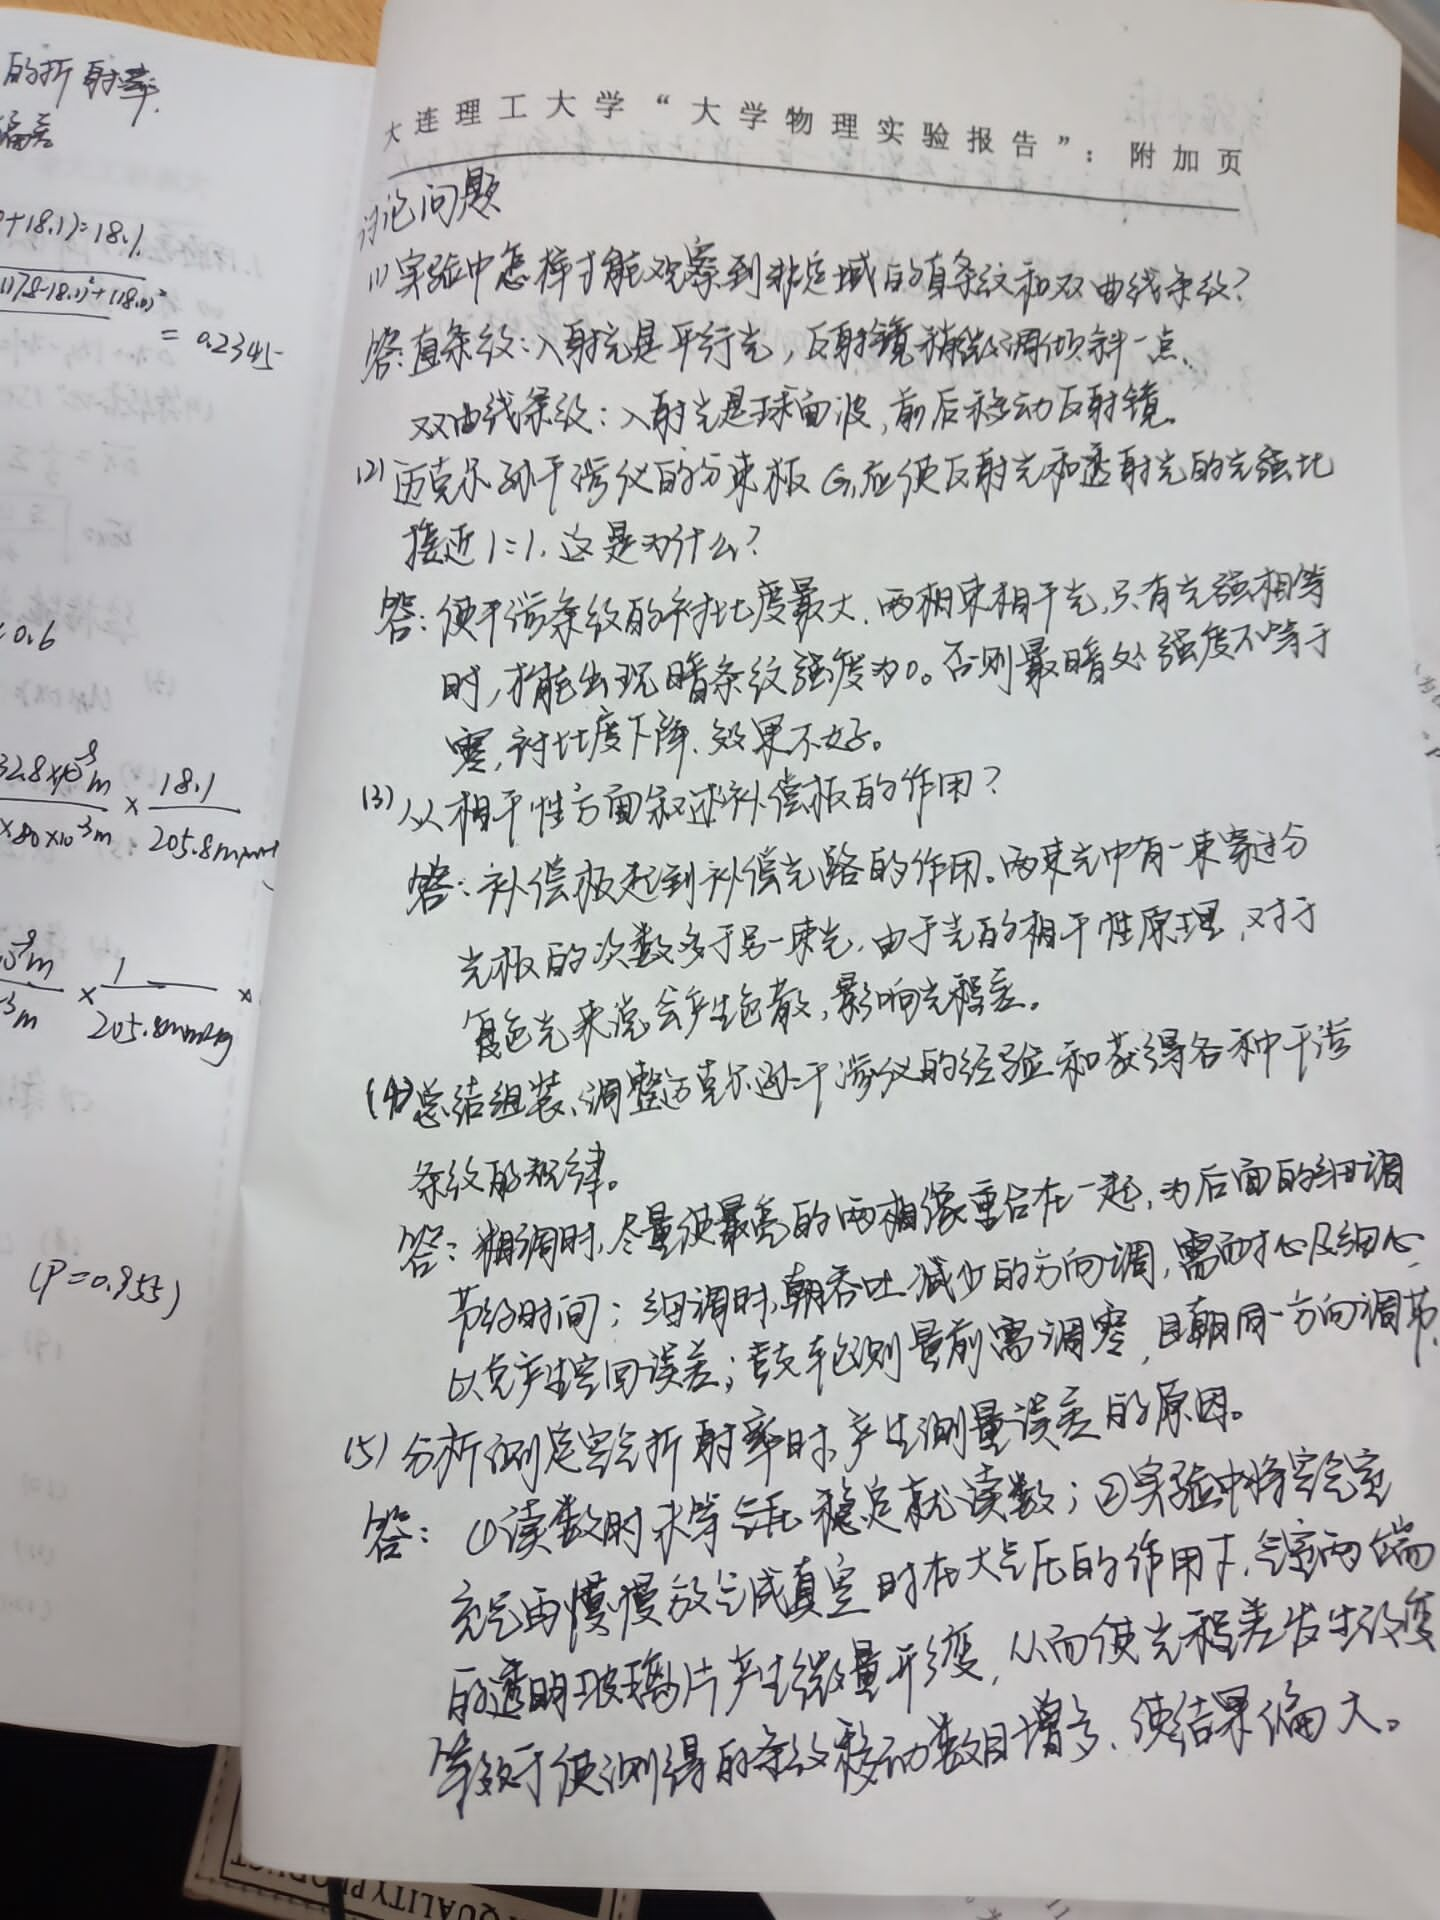 的折射率
偏差
+18.1)=18.1
= 0.2345
0.6
32.8×10⁻⁹m
×80×10⁻³m
× 18.1
205.8mmH
m
⁻³m
× 1
205.8mmHg
×
(P=0.955)
大连理工大学“大学物理实验报告”：附加页
讨论问题
(1) 实验中怎样才能观察到非定域的直条纹和双曲线条纹?
答:直条纹:入射光是平行光,反射镜稍微调倾斜一点、
双曲线条纹:入射光是球面波,前后移动反射镜。
(2) 迈克尔孙干涉仪的分束板G₁应使反射光和透射光的光强比
接近1:1.这是为什么?
答:使干涉条纹的衬比度最大.两相束相干光,只有光强相等
时,才能出现暗条纹强度为0。否则最暗处强度不等于
零,衬比度下降.效果不好。
(3) 从相干性方面叙述补偿板的作用?
答:补偿板起到补偿光路的作用。两束光中有一束穿过分
光板的次数多于另一束光.由于光的相干性原理,对于
复色光来说会产生色散,影响光程差。
(4) 总结组装、调整迈克尔逊干涉仪的经验和获得各种干涉
条纹的规律。
答:粗调时,尽量使最亮的两相像重合在一起,为后面的细调
节约时间;细调时,朝吞吐减少的方向调,需耐心及细心,
以免产生空回误差;鼓轮测量前需调零,且朝同一方向调节.
(5) 分析测定空气折射率时,产生测量误差的原因。
答: ①读数时未等气压稳定就读数;②实验中将空气室
充气再慢慢放气成真空时在大气压的作用下,气室两端
的透明玻璃片产生微量形变,从而使光程差发生改变
等效于使测得的条纹移动数目增多、使结果偏大。
QUALITY PRODUCT